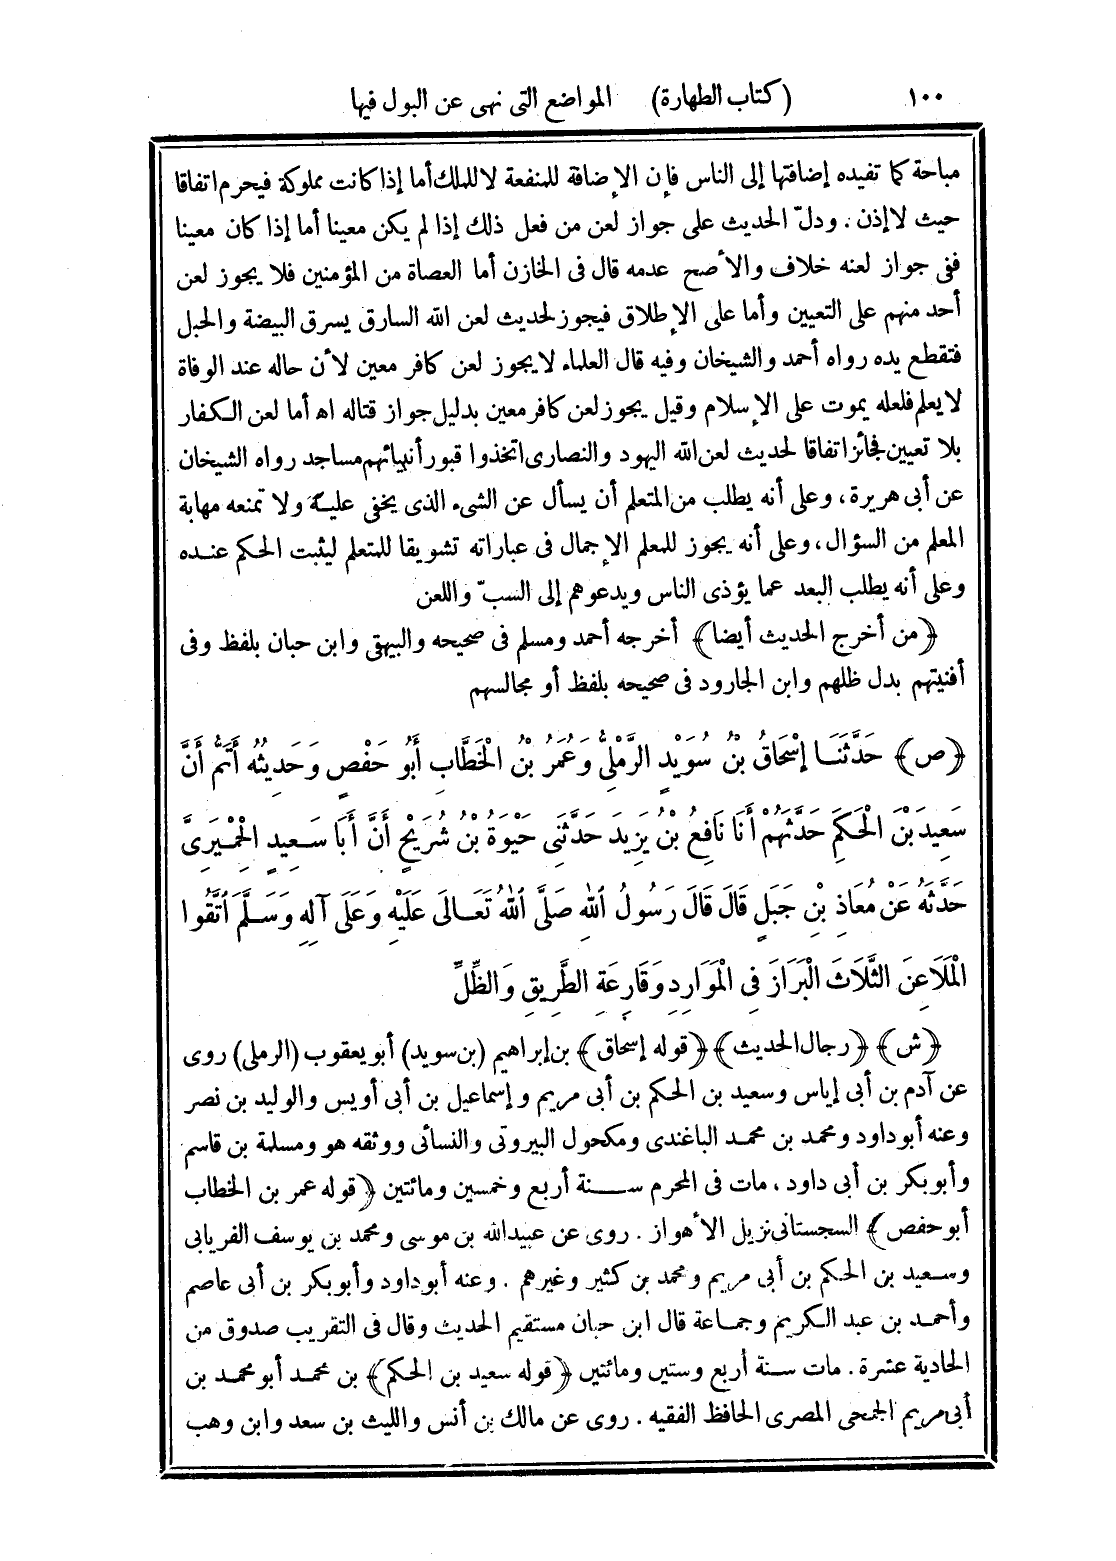 ١٠٠ (كتاب الطهارة) المواضع التى نهى عن البول فيها
مباحة كما تفيده إضافتها إلى الناس فإن الإضافة للمنفعة لا للملك أما إذا كانت مملوكة فيحرم اتفاقا
حيث لا إذن . ودلّ الحديث على جواز لعن من فعل ذلك إذا لم يكن معينا أما إذا كان معينا
ففى جواز لعنه خلاف والأصح عدمه قال فى الخازن أما العصاة من المؤمنين فلا يجوز لعن
أحد منهم على التعيين وأما على الإطلاق فيجوز لحديث لعن الله السارق يسرق البيضة والحبل
فتقطع يده رواه أحمد والشيخان وفيه قال العلماء لا يجوز لعن كافر معين لأن حاله عند الوفاة
لا يعلم فلعله يموت على الإسلام وقيل يجوز لعن كافر معين بدليل جواز قتاله اه أما لعن الكفار
بلا تعيين فجائز اتفاقا لحديث لعن الله اليهود والنصارى اتخذوا قبور أنبيائهم مساجد رواه الشيخان
عن أبى هريرة ، وعلى أنه يطلب من المتعلم أن يسأل عن الشىء الذى يخفى عليه ولا تمنعه مهابة
المعلم من السؤال ، وعلى أنه يجوز للمعلم الإجمال فى عباراته تشويقا للمتعلم ليثبت الحكم عنده
وعلى أنه يطلب البعد عما يؤذى الناس ويدعوهم إلى السبّ واللعن
﴿من أخرج الحديث أيضا﴾ أخرجه أحمد ومسلم فى صحيحه والبيهقى وابن حبان بلفظ وفى
أفنيتهم بدل ظلهم وابن الجارود فى صحيحه بلفظ أو مجالسهم
﴿ص﴾ حَدَّثَنَا إِسْحَاقُ بْنُ سُوَيْدٍ الرَّمْلِىُّ وَعُمَرُ بْنُ الْخَطَّابِ أَبُو حَفْصٍ وَحَدِيثُهُ أَتَمُّ أَنَّ
سَعِيدَ بْنَ الْحَكَمِ حَدَّثَهُمْ أَنَا نَافِعُ بْنُ يَزِيدَ حَدَّثَنِى حَيْوَةُ بْنُ شُرَيْحٍ أَنَّ أَبَا سَعِيدٍ الْحِمْيَرِىَّ
حَدَّثَهُ عَنْ مُعَاذِ بْنِ جَبَلٍ قَالَ قَالَ رَسُولُ اللهِ صَلَّى اللهُ تَعَالَى عَلَيْهِ وَعَلَى آلِهِ وَسَلَّمَ اتَّقُوا
الْمَلَاعِنَ الثَّلَاثَ الْبَرَازَ فِى الْمَوَارِدِ وَقَارِعَةِ الطَّرِيقِ وَالظِّلِّ
﴿ش﴾ ﴿رجال الحديث﴾ ﴿قوله إسحاق﴾ بن إبراهيم (بن سويد) أبو يعقوب (الرملى) روى
عن آدم بن أبى إياس وسعيد بن الحكم بن أبى مريم وإسماعيل بن أبى أويس والوليد بن نصر
وعنه أبو داود ومحمد بن محمد الباغندى ومكحول البيروتى والنسائى ووثقه هو ومسلمة بن قاسم
وأبو بكر بن أبى داود ، مات فى المحرم سنة أربع وخمسين ومائتين ﴿قوله عمر بن الخطاب
أبو حفص﴾ السجستانى نزيل الأهواز . روى عن عبيد الله بن موسى ومحمد بن يوسف الفريابى
وسعيد بن الحكم بن أبى مريم ومحمد بن كثير وغيرهم . وعنه أبو داود وأبو بكر بن أبى عاصم
وأحمد بن عبد الكريم وجماعة قال ابن حبان مستقيم الحديث وقال فى التقريب صدوق من
الحادية عشرة . مات سنة أربع وستين ومائتين ﴿قوله سعيد بن الحكم﴾ بن محمد أبو محمد بن
أبى مريم الجمحى المصرى الحافظ الفقيه . روى عن مالك بن أنس والليث بن سعد وابن وهب